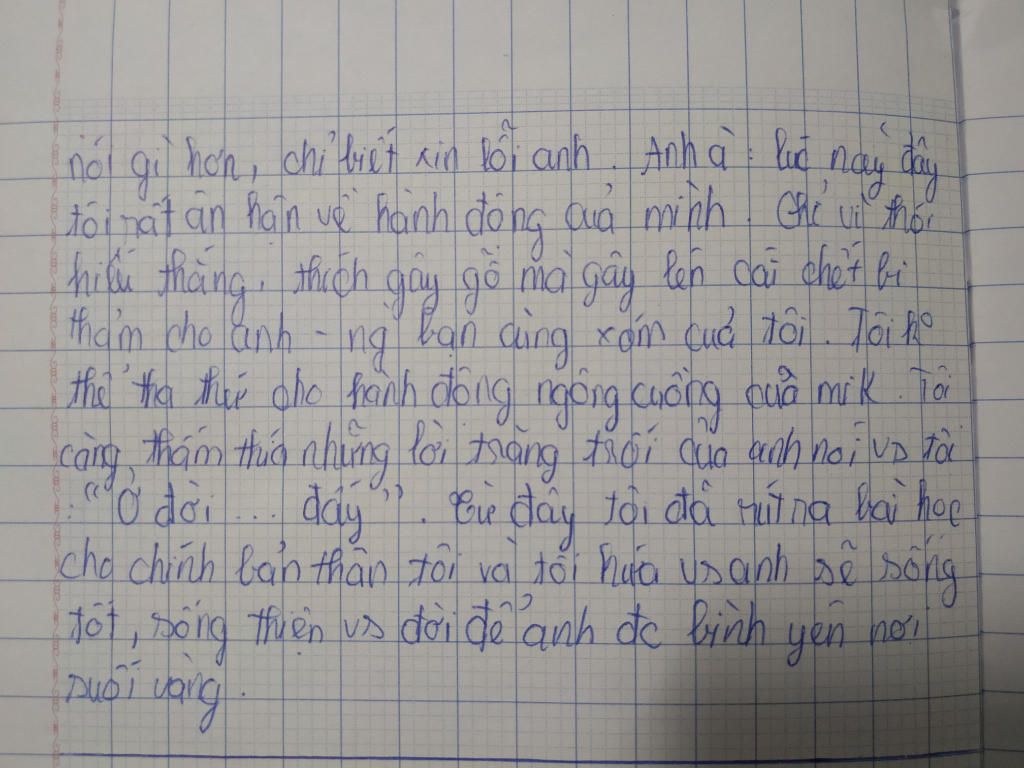 nói gì hơn, chỉ biết xin lỗi anh. Anh à! lúc này đây
tôi rất ân hận về hành động của mình. Chỉ vì thói
hiếu thắng, thích gây gổ mà gây lên cái chết bi
thảm cho anh - ng bạn cùng xóm của tôi. Tôi ko
thể tha thứ cho hành động ngông cuồng của mik. Tôi
càng thấm thía những lời trăng trối của anh nói vs tôi
: "Ở đời ... đấy". Từ đây tôi đã rút ra bài học
cho chính bản thân tôi và tôi hứa vs anh sẽ sống
tốt, sống thiện vs đời để anh đc bình yên nơi
suối vàng.